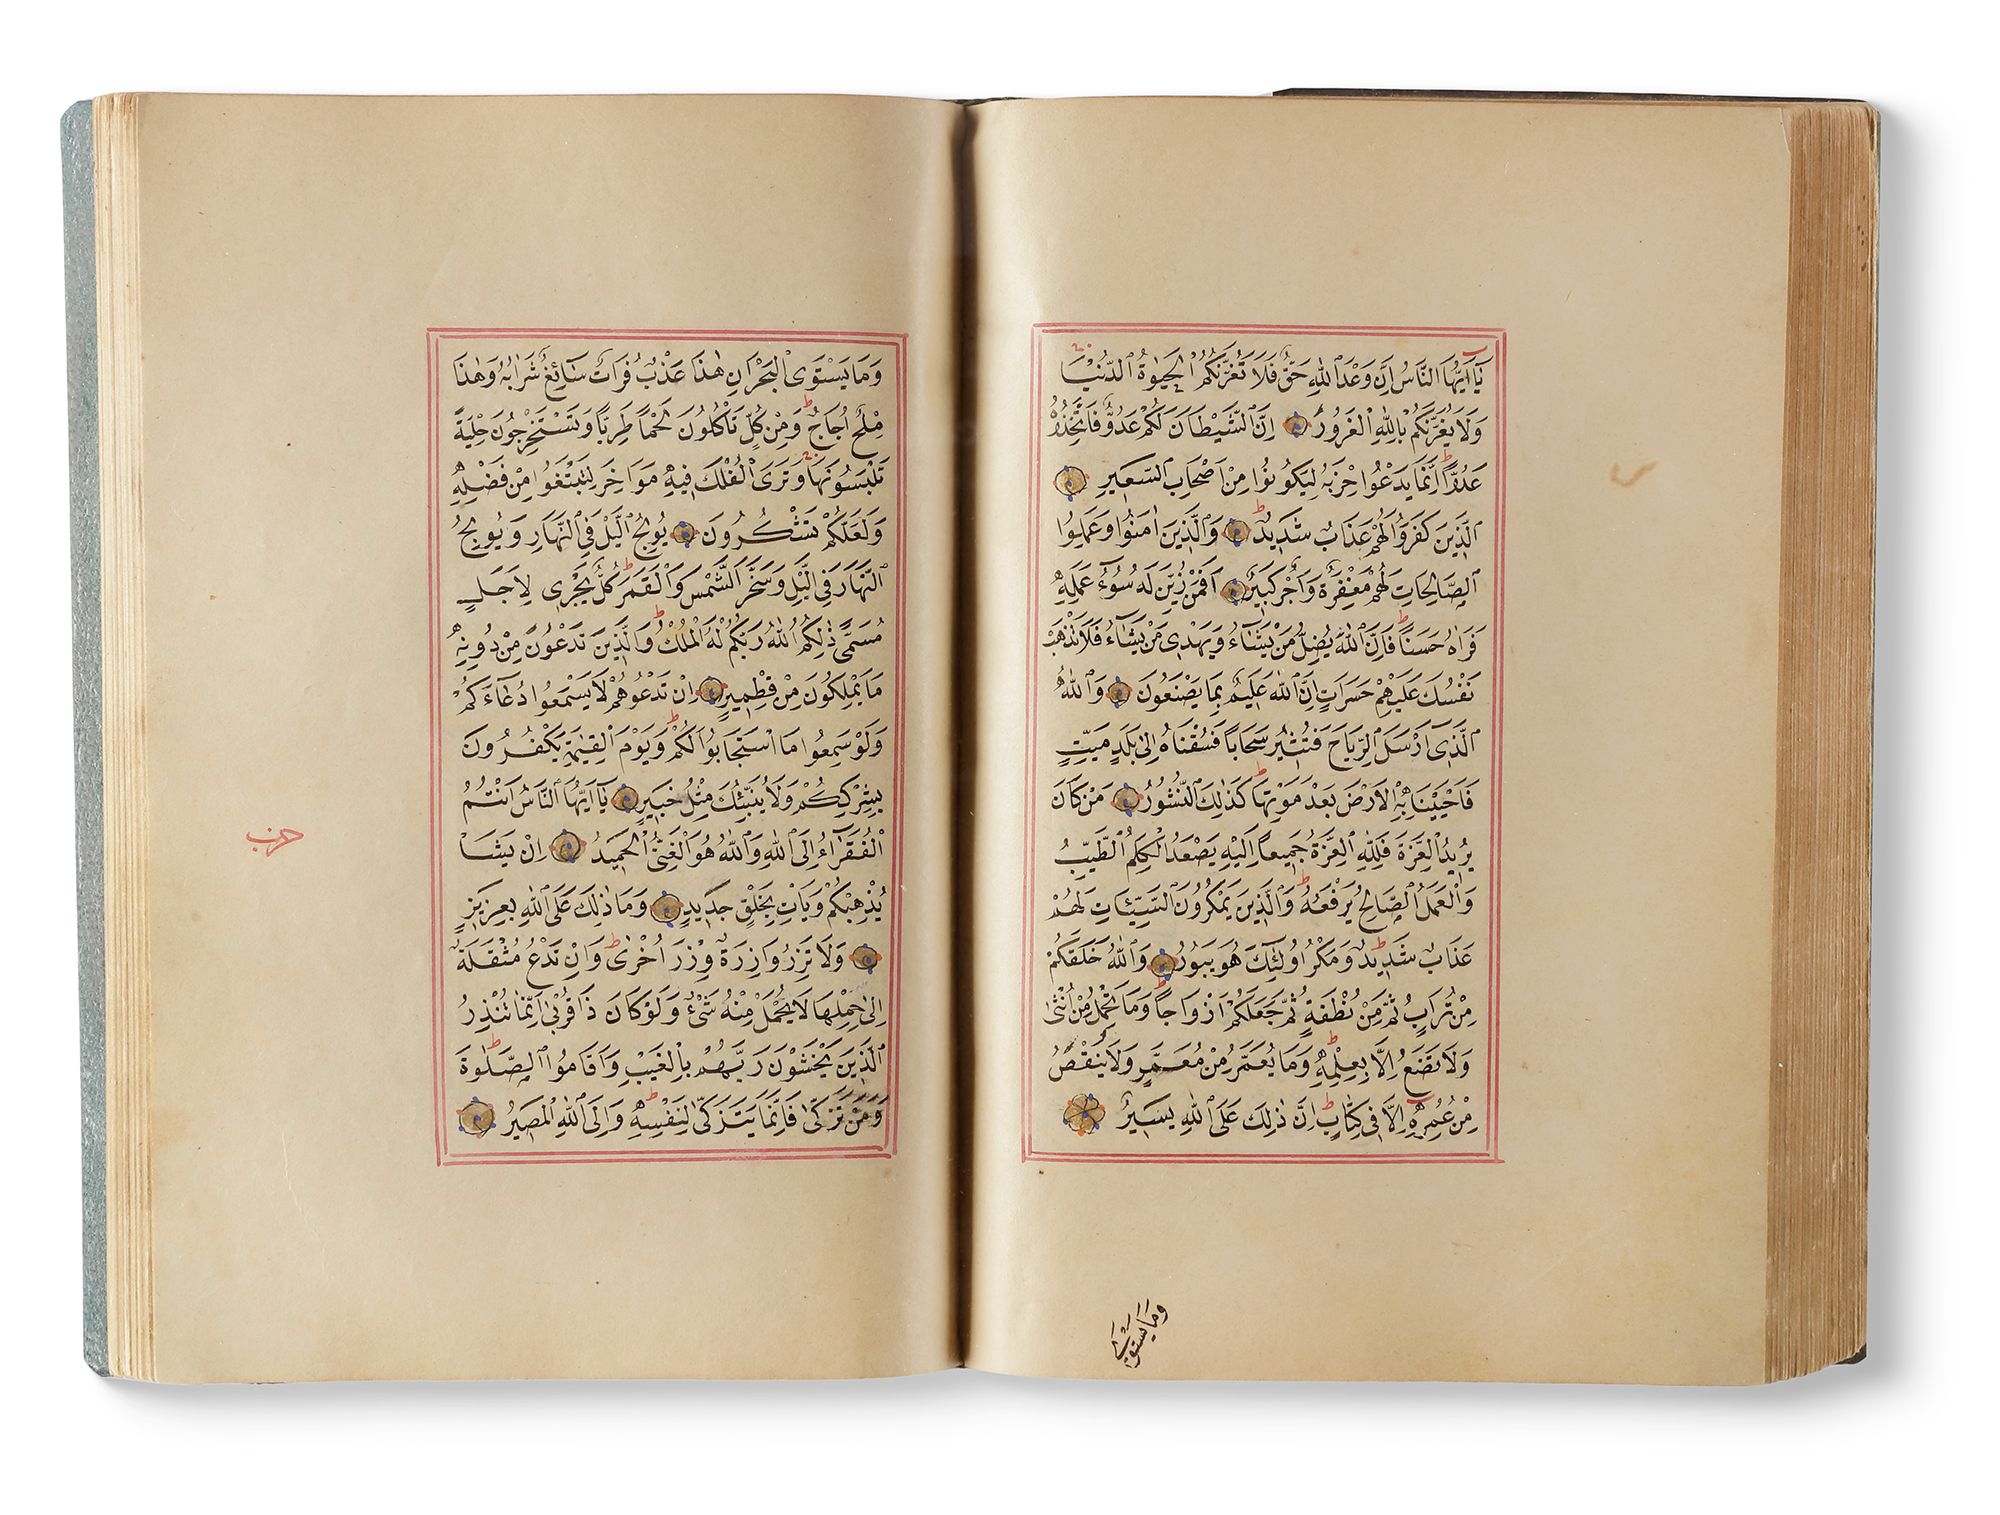 يَآ اَيُّهَا النَّاسُ اِنَّ وَعْدَ اللّٰهِ حَقٌّ فَلَا تَغُرَّنَّكُمُ الْحَيٰوةُ الدُّنْيَا
وَلَا يَغُرَّنَّكُمْ بِاللّٰهِ الْغَرُورُ اِنَّ الشَّيْطَانَ لَكُمْ عَدُوٌّ فَاتَّخِذُوهُ
عَدُوًّا اِنَّمَا يَدْعُوا حِزْبَهُ لِيَكُونُوا مِنْ اَصْحَابِ السَّعِيرِ
اَلَّذِينَ كَفَرُوا لَهُمْ عَذَابٌ شَدِيدٌ وَالَّذِينَ اٰمَنُوا وَعَمِلُوا
الصَّالِحَاتِ لَهُمْ مَغْفِرَةٌ وَاَجْرٌ كَبِيرٌ اَفَمَنْ زُيِّنَ لَهُ سُوءُ عَمَلِهِ
فَرَاٰهُ حَسَنًا فَاِنَّ اللّٰهَ يُضِلُّ مَنْ يَشَاءُ وَيَهْدِي مَنْ يَشَاءُ فَلَا تَذْهَبْ
نَفْسُكَ عَلَيْهِمْ حَسَرَاتٍ اِنَّ اللّٰهَ عَلِيمٌ بِمَا يَصْنَعُونَ وَاللّٰهُ
الَّذِي اَرْسَلَ الرِّيَاحَ فَتُثِيرُ سَحَابًا فَسُقْنَاهُ اِلٰى بَلَدٍ مَيِّتٍ
فَاَحْيَيْنَا بِهِ الْاَرْضَ بَعْدَ مَوْتِهَا كَذٰلِكَ النُّشُورُ مَنْ كَانَ
يُرِيدُ الْعِزَّةَ فَلِلّٰهِ الْعِزَّةُ جَمِيعًا اِلَيْهِ يَصْعَدُ الْكَلِمُ الطَّيِّبُ
وَالْعَمَلُ الصَّالِحُ يَرْفَعُهُ وَالَّذِينَ يَمْكُرُونَ السَّيِّئَاتِ لَهُمْ
عَذَابٌ شَدِيدٌ وَمَكْرُ اُولٰئِكَ هُوَ يَبُورُ وَاللّٰهُ خَلَقَكُمْ
مِنْ تُرَابٍ ثُمَّ مِنْ نُطْفَةٍ ثُمَّ جَعَلَكُمْ اَزْوَاجًا وَمَا تَحْمِلُ مِنْ اُنْثٰى
وَلَا تَضَعُ اِلَّا بِعِلْمِهِ وَمَا يُعَمَّرُ مِنْ مُعَمَّرٍ وَلَا يُنْقَصُ
مِنْ عُمُرِهِ اِلَّا فِي كِتَابٍ اِنَّ ذٰلِكَ عَلَى اللّٰهِ يَسِيرٌ
وَمَا يَسْتَوِي
وَمَا يَسْتَوِي الْبَحْرَانِ هٰذَا عَذْبٌ فُرَاتٌ سَائِغٌ شَرَابُهُ وَهٰذَا
مِلْحٌ اُجَاجٌ وَمِنْ كُلٍّ تَاْكُلُونَ لَحْمًا طَرِيًّا وَتَسْتَخْرِجُونَ حِلْيَةً
تَلْبَسُونَهَا وَتَرَى الْفُلْكَ فِيهِ مَوَاخِرَ لِتَبْتَغُوا مِنْ فَضْلِهِ
وَلَعَلَّكُمْ تَشْكُرُونَ يُولِجُ الَّيْلَ فِي النَّهَارِ وَيُولِجُ
النَّهَارَ فِي الَّيْلِ وَسَخَّرَ الشَّمْسَ وَالْقَمَرَ كُلٌّ يَجْرِي لِاَجَلٍ
مُسَمًّى ذٰلِكُمُ اللّٰهُ رَبُّكُمْ لَهُ الْمُلْكُ وَالَّذِينَ تَدْعُونَ مِنْ دُونِهِ
مَا يَمْلِكُونَ مِنْ قِطْمِيرٍ اِنْ تَدْعُوهُمْ لَا يَسْمَعُوا دُعَاءَكُمْ
وَلَوْ سَمِعُوا مَا اسْتَجَابُوا لَكُمْ وَيَوْمَ الْقِيٰمَةِ يَكْفُرُونَ
بِشِرْكِكُمْ وَلَا يُنَبِّئُكَ مِثْلُ خَبِيرٍ يَآ اَيُّهَا النَّاسُ اَنْتُمُ
الْفُقَرَاءُ اِلَى اللّٰهِ وَاللّٰهُ هُوَ الْغَنِيُّ الْحَمِيدُ اِنْ يَشَاْ
يُذْهِبْكُمْ وَيَاْتِ بِخَلْقٍ جَدِيدٍ وَمَا ذٰلِكَ عَلَى اللّٰهِ بِعَزِيزٍ
وَلَا تَزِرُ وَازِرَةٌ وِزْرَ اُخْرٰى وَاِنْ تَدْعُ مُثْقَلَةٌ
اِلٰى حِمْلِهَا لَا يُحْمَلْ مِنْهُ شَيْءٌ وَلَوْ كَانَ ذَا قُرْبٰى اِنَّمَا تُنْذِرُ
الَّذِينَ يَخْشَوْنَ رَبَّهُمْ بِالْغَيْبِ وَاَقَامُوا الصَّلٰوةَ
وَمَنْ تَزَكّٰى فَاِنَّمَا يَتَزَكّٰى لِنَفْسِهِ وَاِلَى اللّٰهِ الْمَصِيرُ
حزب